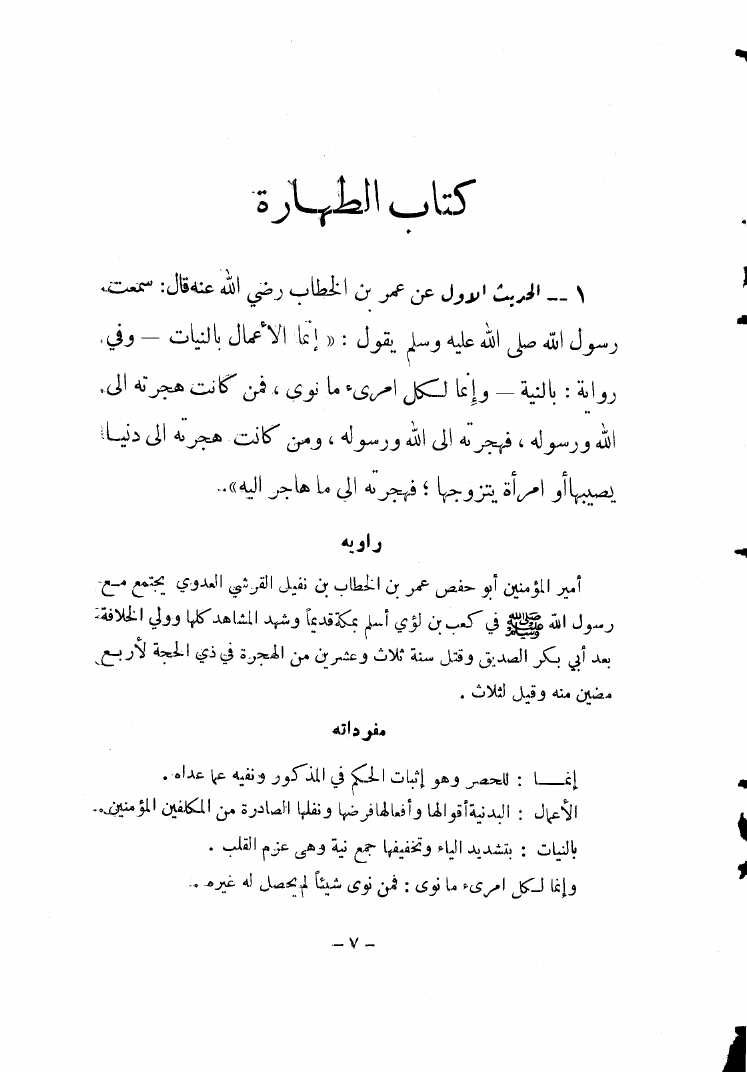 كتاب الطهارة
١ — الحديث الاول عن عمر بن الخطاب رضي الله عنه قال: سمعت
رسول الله صلى الله عليه وسلم يقول : « إنما الأعمال بالنيات — وفي
رواية : بالنية — وإنما لكل امرىء ما نوى ، فمن كانت هجرته الى
الله ورسوله ، فهجرته الى الله ورسوله ، ومن كانت هجرته الى دنيا
يصيبها أو امرأة يتزوجها ؛ فهجرته الى ما هاجر اليه» .
راويه
أمير المؤمنين أبو حفص عمر بن الخطاب بن نفيل القرشي العدوي يجتمع مع
رسول الله ﷺ في كعب بن لؤي أسلم بمكة قديماً وشهد المشاهد كلها وولي الخلافة
بعد أبي بكر الصديق وقتل سنة ثلاث وعشرين من الهجرة في ذي الحجة لأربع
مضين منه وقيل لثلاث .
مفرداته
إنما : للحصر وهو إثبات الحكم في المذكور ونفيه عما عداه .
الأعمال : البدنية أقوالها وأفعالها فرضها ونفلها الصادرة من المكلفين المؤمنين .
بالنيات : بتشديد الياء وتخفيفها جمع نية وهي عزم القلب .
وإنما لكل امرىء ما نوى : فمن نوى شيئاً لم يحصل له غيره .
– ٧ –